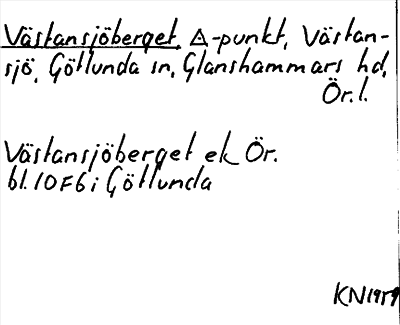 Västansjöberget, △-punkt, Västan-
sjö, Götlunda sn, Glanshammars hd,
Ör. l.
Västansjöberget ek Ör.
bl. 10F6i Götlunda
KN 1959